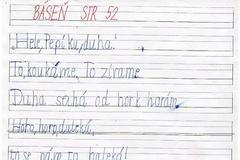 BÁSEŇ STR 52
„Hele, Pepíku, duha.“
To, koukáme, To zírame.
Duha sahá od hor k horám
Horo, horo, daleká,
to se nám to